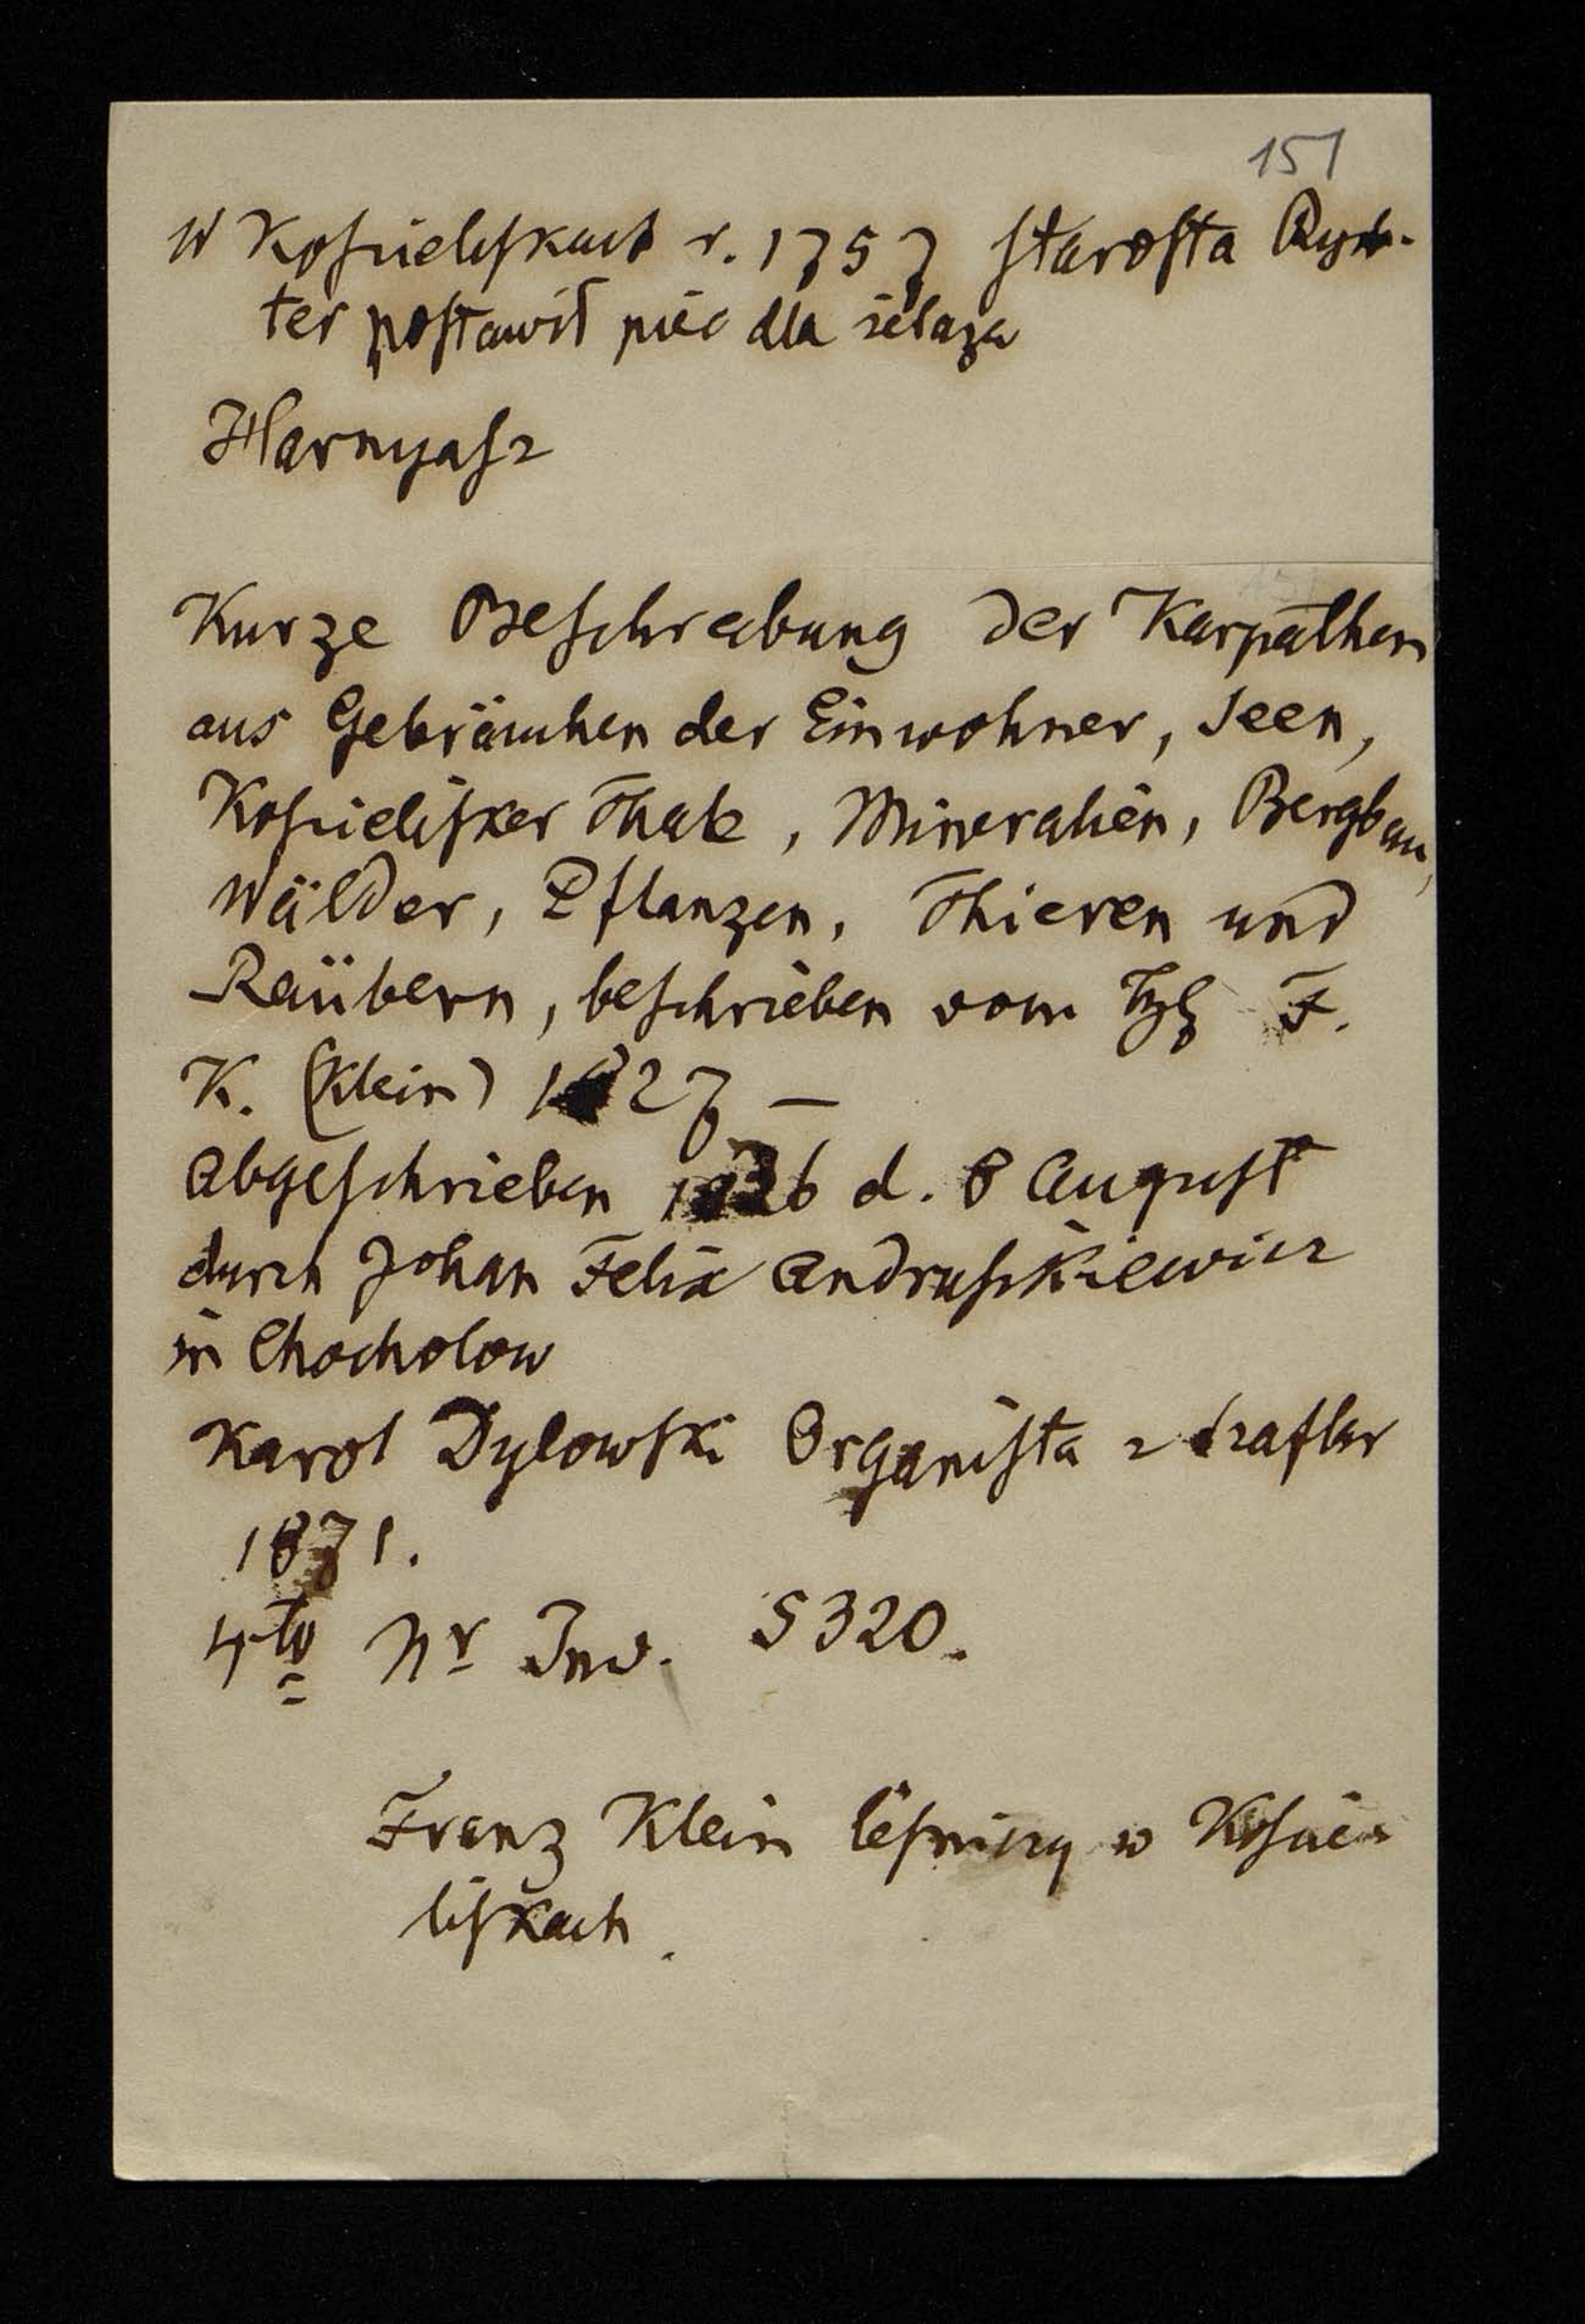 151
W Kościeliskach r. 1757 starosta Rych-
ter postawił piec dla żelaza
Harnyasz
Kurze Beschreibung der Karpathen
aus Gebräuchen der Einwohner, Seen,
Kościelisker Thale, Mineralien, Bergbau,
Wälder, Pflanzen, Thieren und
Raübern, beschrieben vom F.
K. (Klein) 1827 —
Abgeschrieben 1836 d. 8 August
durch Johan Felix Andruszkiewicz
in Chocholow
Karol Dylowski Organista z Szaflar
1871.
4to Nr Inw. 5320.
Franz Klein leśniczy w Koście-
liskach.